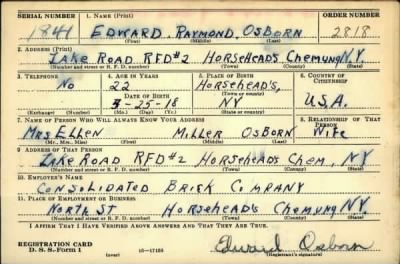 SERIAL NUMBER 1. NAME (Print) ORDER NUMBER
1841 EDWARD RAYMOND OSBORN 2818
(First) (Middle) (Last)
2. ADDRESS (Print)
LAKE ROAD RFD#2 HORSEHEADS CHEMUNG N.Y.
(Number and street or R. F. D. number) (Town) (County) (State)
3. TELEPHONE 4. AGE IN YEARS 5. PLACE OF BIRTH 6. COUNTRY OF CITIZENSHIP
NO 22 HORSEHEADS,
(Town or county)
DATE OF BIRTH
3-25-18 NY U.S.A.
(Exchange) (Number) (Mo.) (Day) (Yr.) (State or country)
7. NAME OF PERSON WHO WILL ALWAYS KNOW YOUR ADDRESS 8. RELATIONSHIP OF THAT PERSON
MRS ELLEN MILLER OSBORN WIFE
(Mr., Mrs., Miss) (First) (Middle) (Last)
9. ADDRESS OF THAT PERSON
LAKE ROAD RFD#2 HORSEHEAD'S CHEM, NY
(Number and street or R. F. D. number) (Town) (County) (State)
10. EMPLOYER'S NAME
CONSOLIDATED BRICK COMPANY
11. PLACE OF EMPLOYMENT OR BUSINESS
NORTH ST HORSEHEAD'S CHEMUNG NY.
(Number and street or R. F. D. number) (Town) (County) (State)
I AFFIRM THAT I HAVE VERIFIED ABOVE ANSWERS AND THAT THEY ARE TRUE.
REGISTRATION CARD
D. S. S. Form 1 (over) 16-17105 Edward Osborn
(Registrant's signature)